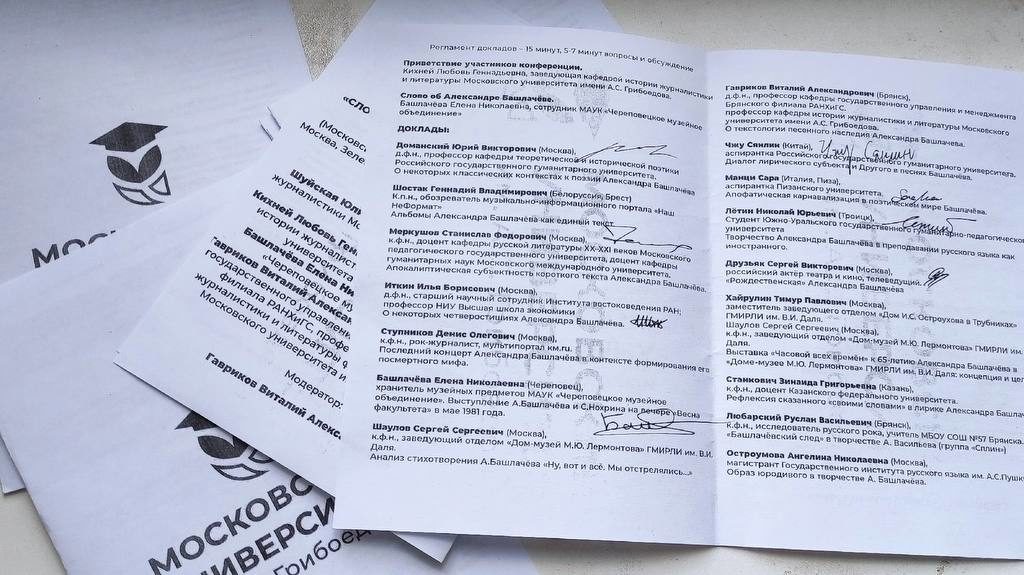 Регламент докладов – 15 минут, 5-7 минут вопросы и обсуждение
Приветствие участников конференции.
Кихней Любовь Геннадьевна, заведующая кафедрой истории журналистики
и литературы Московского университета имени А.С. Грибоедова.
Слово об Александре Башлачёве.
Башлачёва Елена Николаевна, сотрудник МАУК «Череповецкое музейное
объединение»
ДОКЛАДЫ:
Доманский Юрий Викторович (Москва),
д.ф.н., профессор кафедры теоретической и исторической поэтики
Российского государственного гуманитарного университета.
О некоторых классических контекстах к поэзии Александра Башлачёва
Шостак Геннадий Владимирович (Белоруссия, Брест)
К.п.н., обозреватель музыкально-информационного портала «Наш
НеФормат»
Альбомы Александра Башлачева как единый текст
Меркушов Станислав Федорович (Москва),
к.ф.н., доцент кафедры русской литературы XX-XXI веков Московского
педагогического государственного университета, доцент кафедры
гуманитарных наук Московского международного университета.
Апокалиптическая субъектность короткого текста Александра Башлачёва.
Иткин Илья Борисович (Москва),
д.ф.н., старший научный сотрудник Института востоковедения РАН;
профессор НИУ Высшая школа экономики
О некоторых четверостишиях Александра Башлачева.
Ступников Денис Олегович (Москва),
к.ф.н., рок-журналист, мультипортал км.ru.
Последний концерт Александра Башлачёва в контексте формирования его
посмертного мифа.
Башлачёва Елена Николаевна (Череповец),
хранитель музейных предметов МАУК «Череповецкое музейное
объединение». Выступление А.Башлачева и С.Нохрина на вечере «Весна
факультета» в мае 1981 года.
Шаулов Сергей Сергеевич (Москва),
к.ф.н., заведующий отделом «Дом-музей М.Ю. Лермонтова» ГМИРЛИ им. В.И.
Даля.
Анализ стихотворения А.Башлачёва «Ну, вот и всё. Мы отстрелялись...»
Гавриков Виталий Александрович (Брянск),
д.ф.н., профессор кафедры государственного управления и менеджмента
Брянского филиала РАНХиГС.
профессор кафедры истории журналистики и литературы Московского
университета имени А.С. Грибоедова.
О текстологии песенного наследия Александра Башлачева.
Чжу Сянлин (Китай),
аспирантка Российского государственного гуманитарного университета.
Диалог лирического субъекта и Другого в песнях Башлачёва.
Манци Сара (Италия, Пиза),
аспирантка Пизанского университета,
Апофатическая карнавализация в поэтическом мире Башлачёва.
Лётин Николай Юрьевич (Троицк),
Студент Южно-Уральского государственного гуманитарно-педагогического
университета
Творчество Александра Башлачева в преподавании русского языка как
иностранного.
Друзьяк Сергей Викторович (Москва),
российский актёр театра и кино, телеведущий.
«Рождественская» Александра Башлачёва
Хайрулин Тимур Павлович (Москва),
заместитель заведующего отделом «Дом И.С. Остроухова в Трубниках»
ГМИРЛИ им. В.И. Даля.
Шаулов Сергей Сергеевич (Москва),
к.ф.н., заведующий отделом «Дом-музей М.Ю. Лермонтова» ГМИРЛИ им. В.И. Даля.
Выставка «Часовой всех времён» к 65-летию Александра Башлачёва в
«Доме-музее М.Ю. Лермонтова» ГМИРЛИ им. В.И. Даля: концепция и
Станкович Зинаида Григорьевна (Казань),
к.ф.н., доцент Казанского федерального университета.
Рефлексия сказанного «своими словами» в лирике Александра
Любарский Руслан Васильевич (Брянск),
к.ф.н., исследователь русского рока, учитель МБОУ СОШ №57 Брянска.
«Башлачёвский след» в творчестве А. Васильева (группа «Сплин»)
Остроумова Ангелина Николаевна (Москва),
магистрант Государственного института русского языка им. А.С.
Образ юродивого в творчестве А. Башлачёва.
«СЛО
(Московс
Москва, Зеле
Шуйская Юли
журналистики Мо
Кихней Любовь Ген
истории журналист
университета
Башлачёва Елена Ни
«Череповецкое м
Гавриков Виталий Алекса
государственного управлен
филиала РАНХиГС, профе
журналистики и литературы
Московского университета и
Модератор:
Гавриков Виталий Алекс
МОСКО
МОСКОВС
УНИВЕРСИ
Грибоед